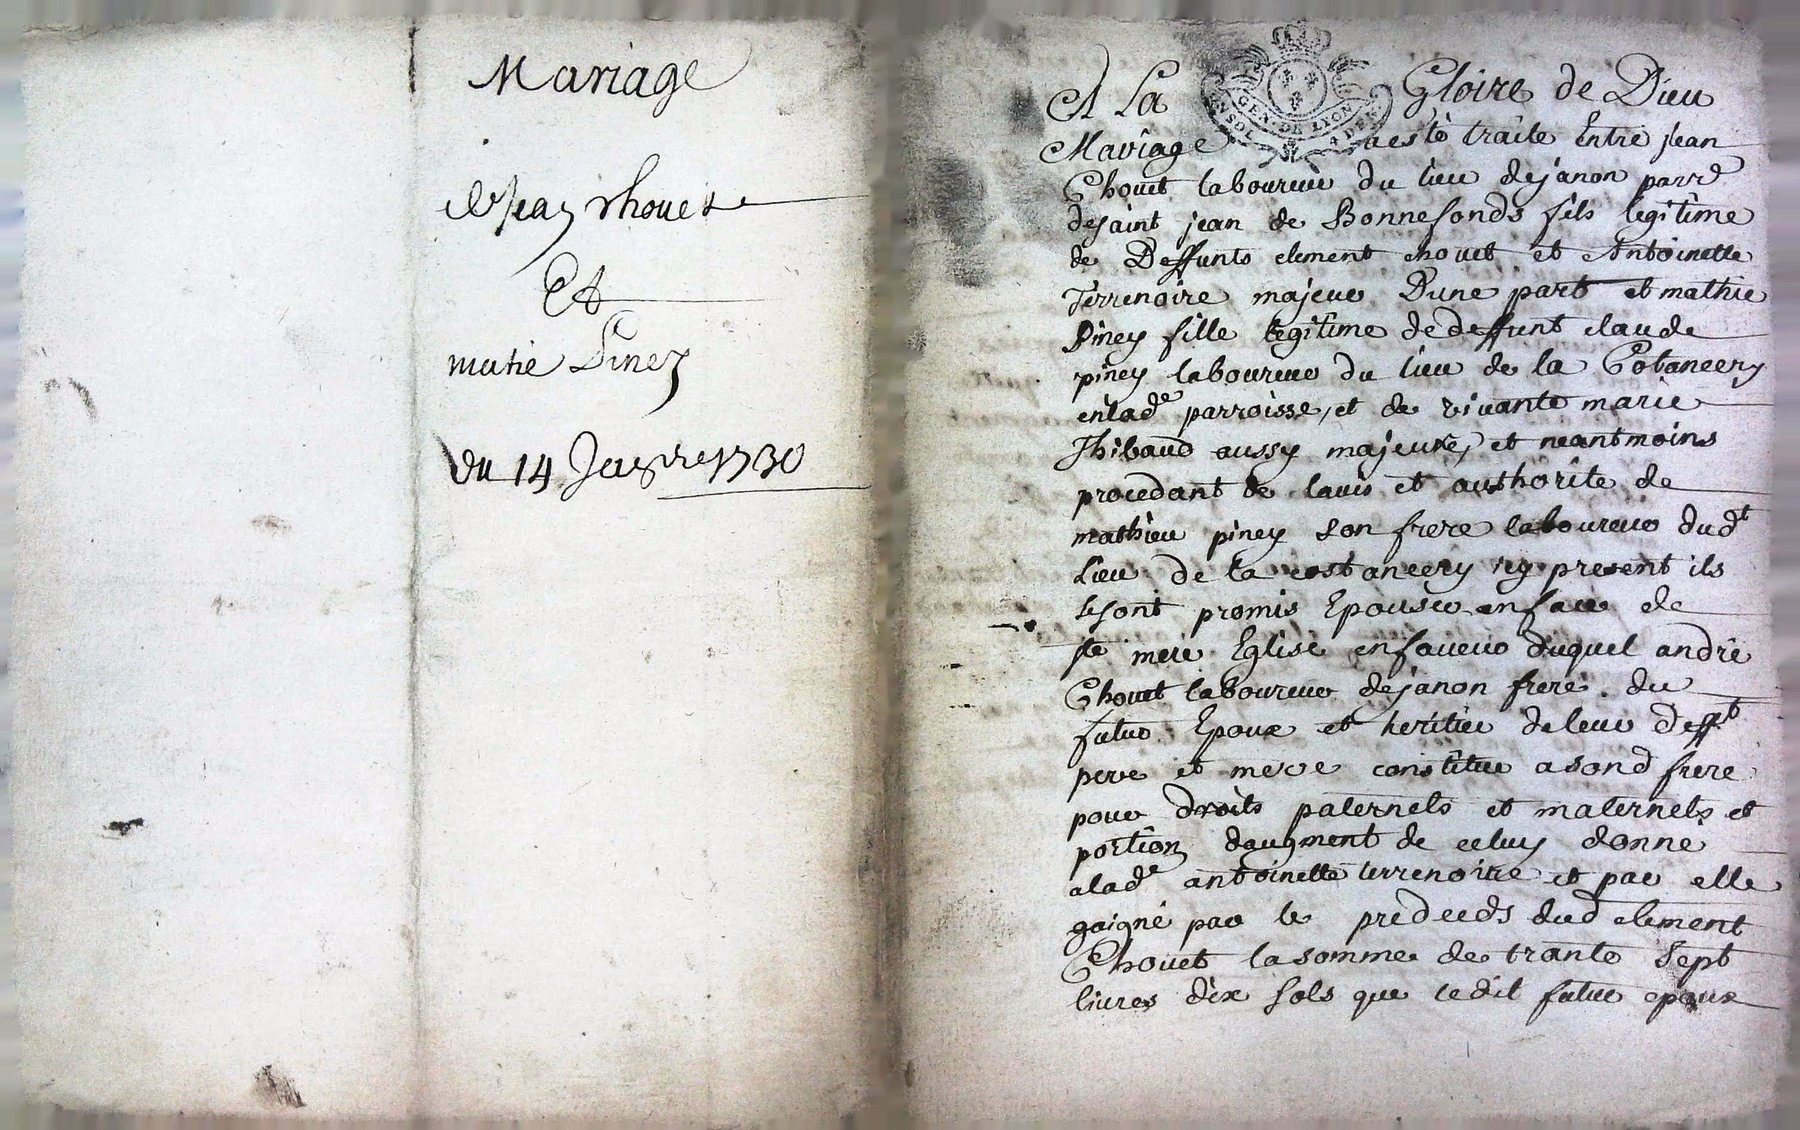 Mariage
de Jean Chouet
Et
matie Piney
du 14 Janvre 1730
A La Gloire de Dieu
GEN. DE LYON
Mariage a esté traité Entre jean
Chouet laboureur du lieu dejanon parr.
desaint jean de Bonnefonds fils legitime
de Deffunts clement chouet et Antoinette
Terrenoire majeur Dune part et mathie
Piney fille legitime de deffunt claude
piney laboureur du lieu de la Cotanceery
enlade parroisse, et de vivante marie
Thibaud aussy majeure, et neantmoins
procedant de lavis et authorité de
mathieu piney son frere laboureur dudt
Lieu de la costanceery icy present ils
sesont promis Epouser enface de
ste mere Eglise enfaveur duquel andré
Chouet laboureur dejanon frere du
futur Epoux et heritier deleur defft
pere et mere constitue asond frere
pour droits paternels et maternels et
portion daugment de celuy donné
alade antoinette terrenoire et par elle
gaigné par le predeceds dud clement
Chouet lasomme de trante Sept
livres dix sols que ledit futur epoux